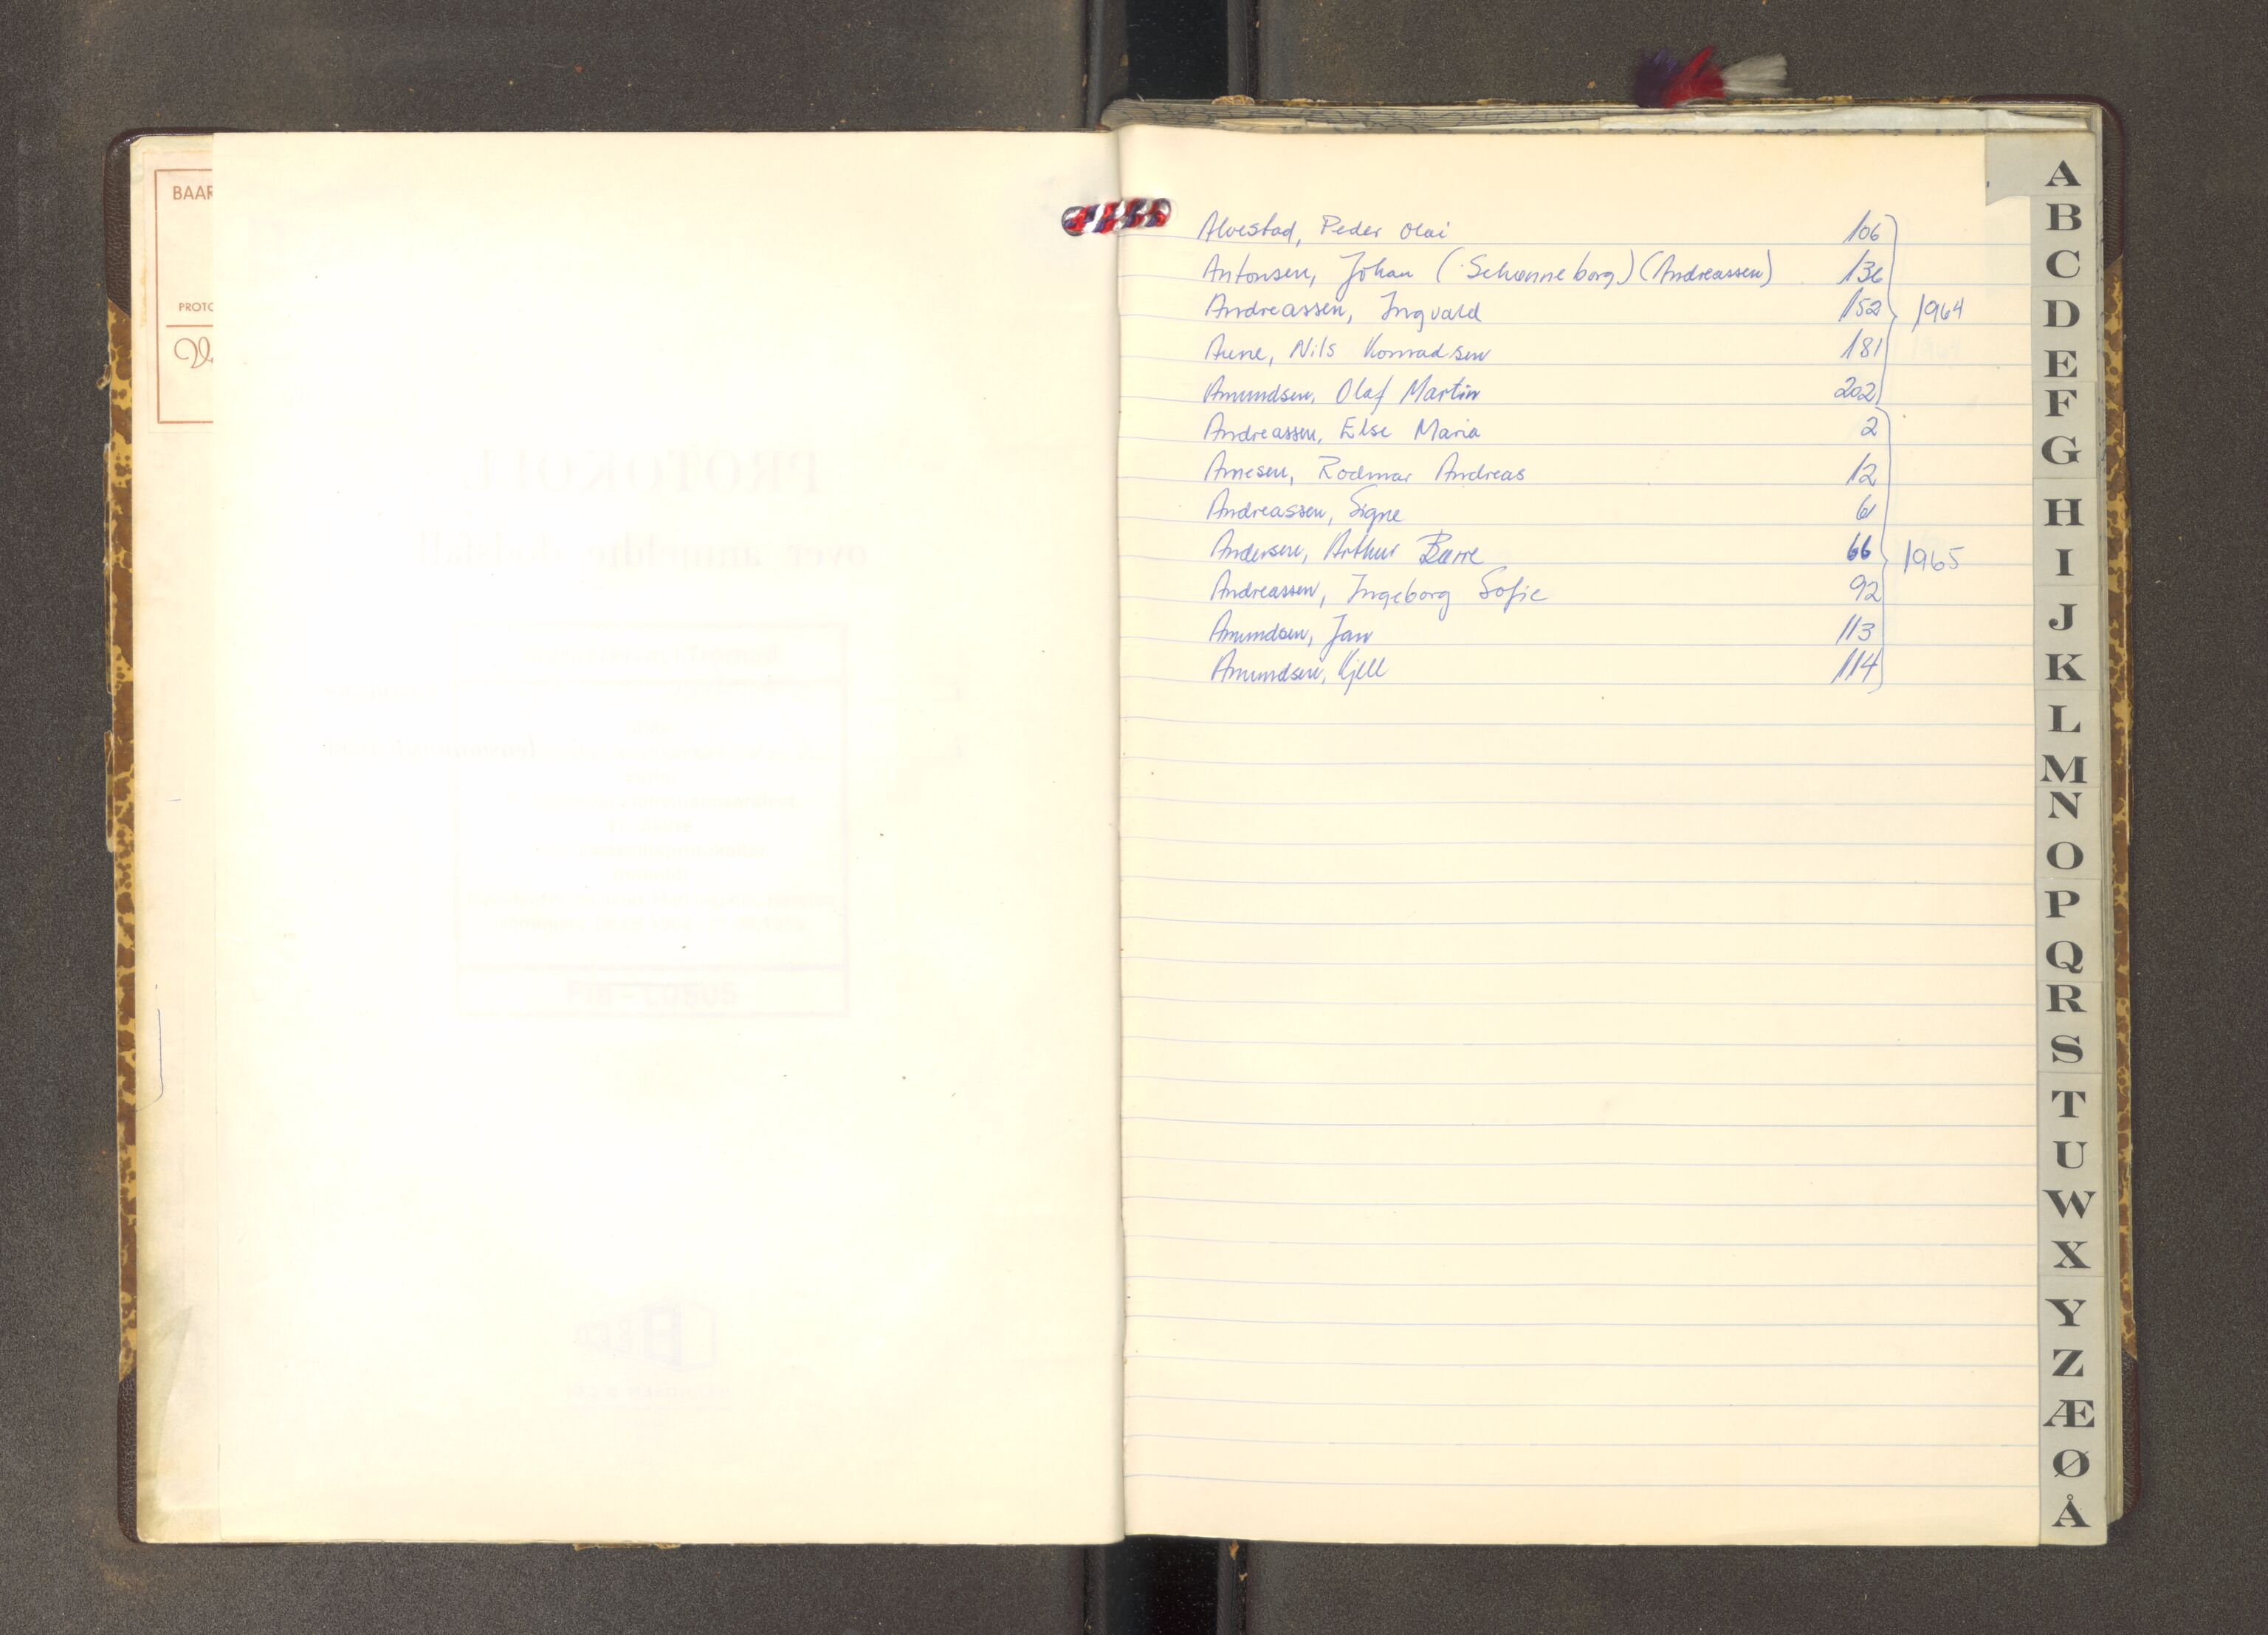 BAAR
PROTO
Alvestad, Peder Olai 106
Antonsen, Johan (Schønneborg) (Andreassen) 136
Andreassen, Ingvald 152
1964
Aune, Nils Konradsen 181
Amundsen, Olaf Martin 202
Andreassen, Else Maria 2
Arnesen, Rodmar Andreas 12
Andreassen, Signe 61
Andersen, Arthur Barre 66
1965
Andreassen, Ingeborg Sofie 92
Amundsen, Jan 113
Amundsen, Kjell 114
A
B
C
D
E
F
G
H
I
J
K
L
M
N
O
P
Q
R
S
T
U
W
X
Y
Z
Æ
Ø
Å
PROTOKOLL
over anmeldte dødsfall